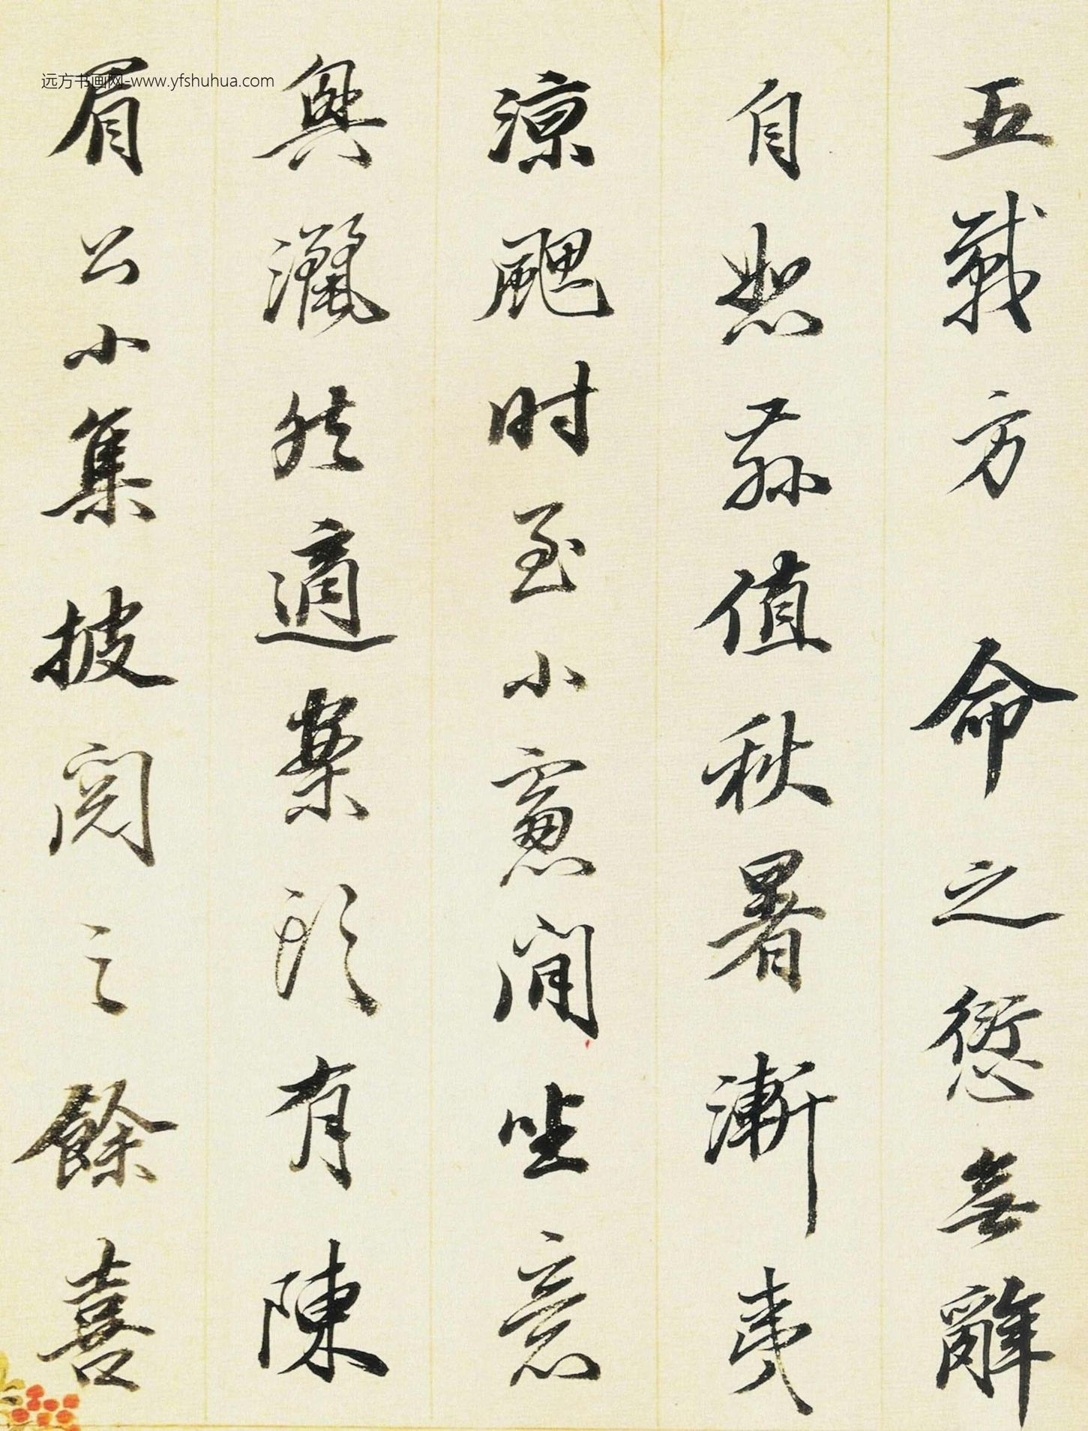 五載方 命之愆無辭
自恕茲值秋暑漸夷
涼颸时至小窻间坐意
興灑然適案头有陳
眉公小集披阅之餘喜
远方书画网-www.yfshuhua.com